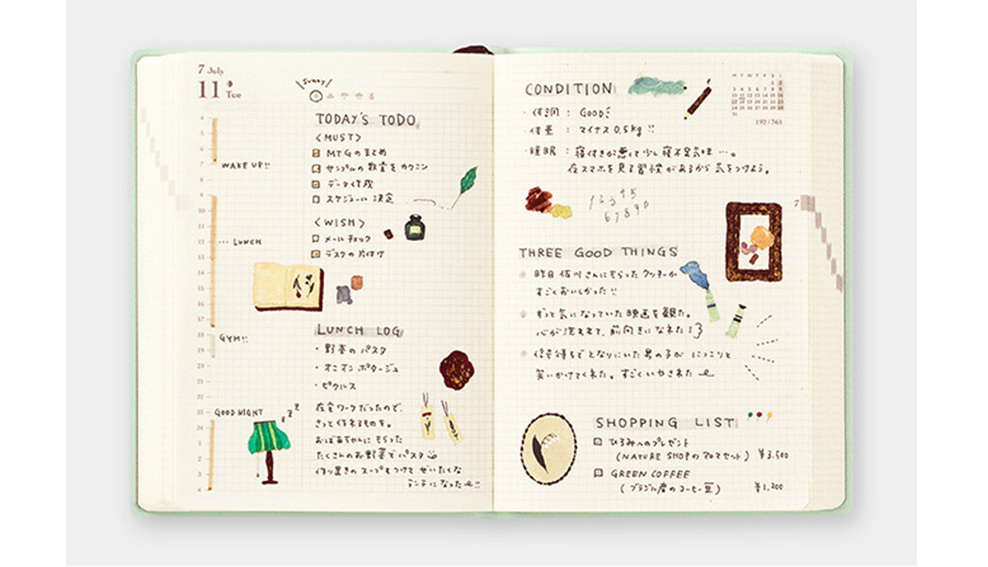 7 July
11 Tue
Sunny
TODAY'S TODO
<MUST>
MTGのまとめ
サンプルの教室をカクニン
データ作成
スケジュール決定
<WISH>
メールチェック
デスクの片付け
4
6
7
WAKE UP!!
8
9
10
11
12
LUNCH
13
14
15
16
17
18
19
GYM!!
20
21
22
GOOD NIGHT
zzZ
24
1
2
3
4
LUNCH LOG
・野菜のパスタ
・オニオンポタージュ
・ピクルス
在宅ワークだったので、
さっと作れるものを。
おばあちゃんにもらった
たくさんのお野菜でパスタ
作り置きのスープもつけてぜいたくな
ランチになった!!
CONDITION
・体調 : GOOD!
・体重 : マイナス 0.5kg!!
・睡眠 : 寝付きが悪くて少し寝不足気味…。
夜スマホを見る習慣があるから気をつけよう。
M T W T F S S
192/365
12345
67890
7
THREE GOOD THINGS
昨日佐川さんにもらったクッキーが
すごくおいしかった!!
ずっと気になっていた映画を観た。
心が洗われて、前向きになれた!
信号待ちでとなりにいた男の子がにっこりと
笑いかけてくれた。すごくいやされた
SHOPPING LIST
ひろみへのプレゼント
(NATURE SHOPのアロマセット) ¥3.500
GREEN COFFEE
(ブラジル産のコーヒー豆) ¥1.200